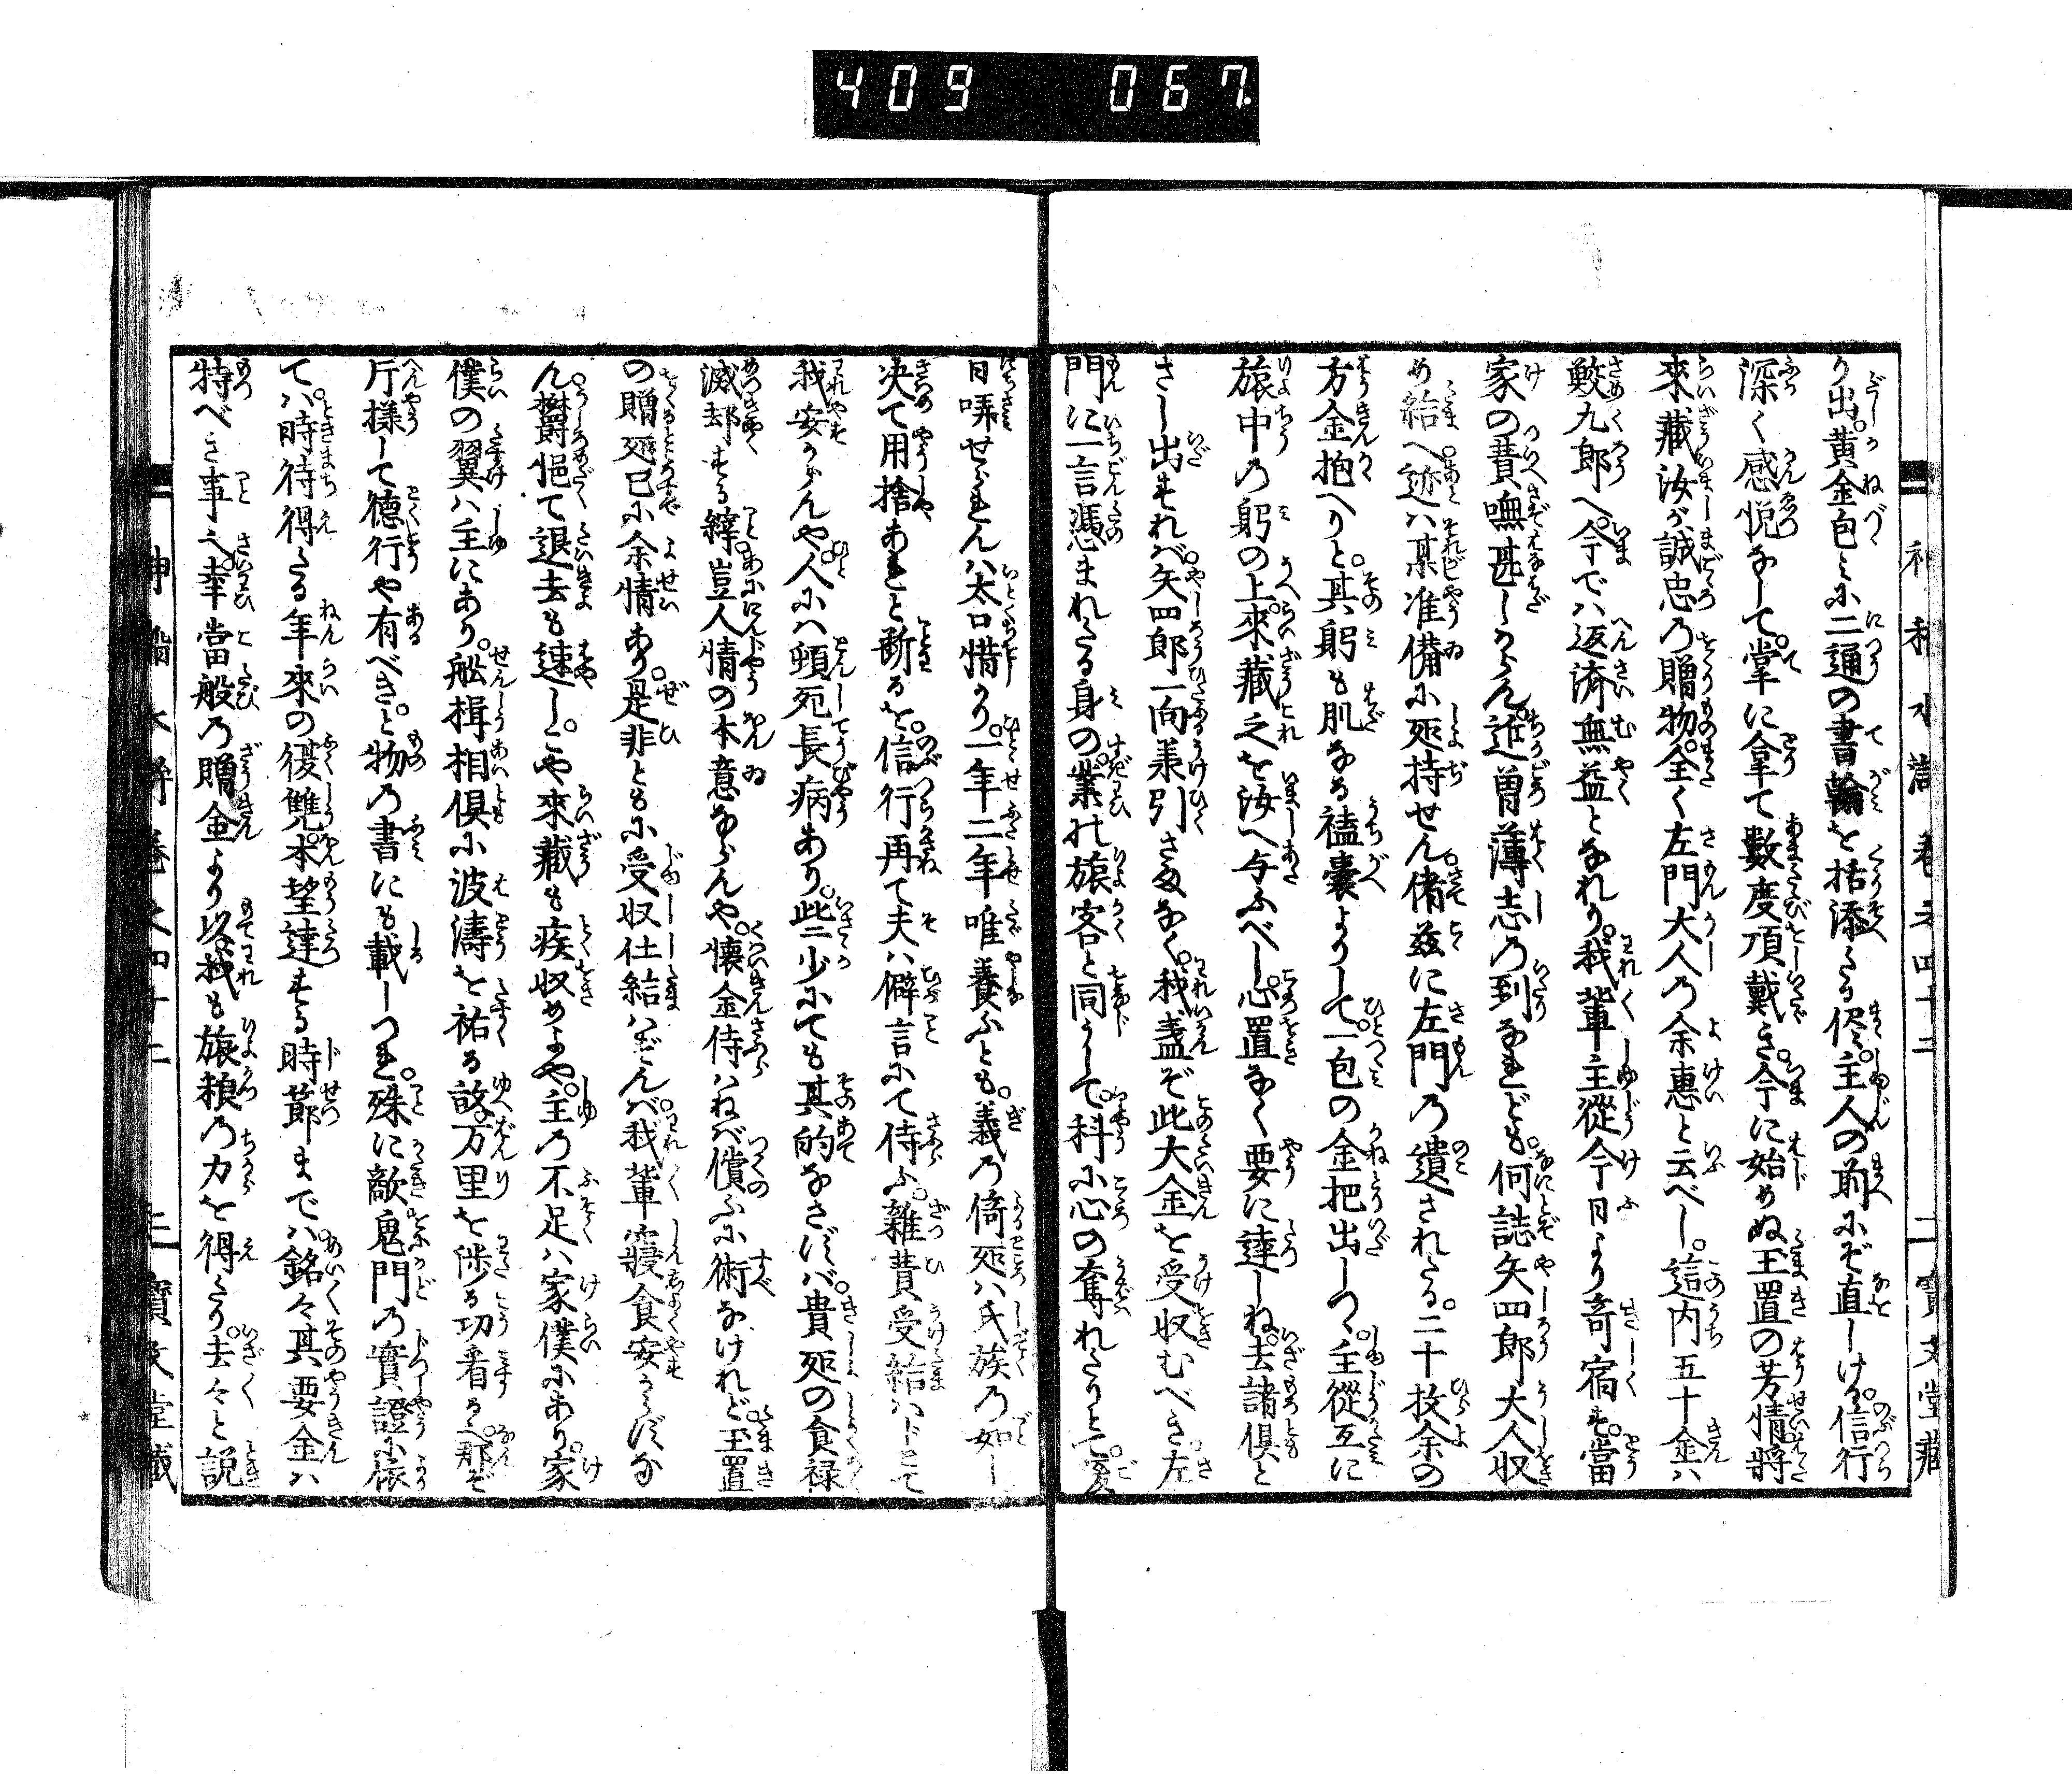 409 067.
り出。黄金包みに二通の書翰を括添たる侭。主人の前にぞ直しける。信行
深く感悦なして。掌に拿て数度頂戴き。今に始めぬ玉置の芳情將
來藏汝が誠忠の贈物。全く左門大人の余惠と云べし。這内五十金ハ
鮫九郎へ。今でハ返済無益となれり。我輩主從今日より寄宿す。當
家の費嘸甚しからん。近曽薄志の到なれども。何誌矢四郎大人収
め給へ。迹ハ某准備に処持せん。偖茲に左門の遺されたる。二十枚余の
方金抱へりと。其躬も肌なる襠嚢よりして。一包の金把出しつゝ。主從互に
旅中の躬の上。來藏之を汝へ与ふべし。心置なく要に達しね。去諸倶と
さし出すれバ。矢四郎一向兼引さまなく。我盡ぞ此大金を受収むべき。左
門に一言憑まれたる身の。業れ旅客と同うして。科に心の奪れたりとて。憂
目哢せられんハ太口惜かり。一年二年唯養ふとも。義の倚処ハ氏族の如し
决て用捨あれと断るを。信行再て夫ハ僻言にて侍ふ。雑費受給ハじとて
我安からんや。人にハ頓死長病あり。些少にても其的なさずバ。貴処の食禄
滅却する繹。豈人情の本意ならんや。懐金侍ハねバ償ふに術なけれど。玉置
の贈処已に余情あり。是非ともに受収仕給ハずんバ。我輩寝食安からずな
ん。欝悒て退去も速し。とや來藏も疾収めよや。主の不足ハ家僕にあり。家
僕の翼ハ主にあり。舩揖相倶に波濤を祐る故。万里を渉る功着るべ。那ぞ
片様して德行や有べき。と物の書にも載しつれ。殊に敵鬼門の實證に依
て。ハ時待得たる年來の復讐。本望達する時節までハ。銘々其要金ハ
特べき事之。幸當般の贈金より。以我も旅粮の力を得たり。去々と説